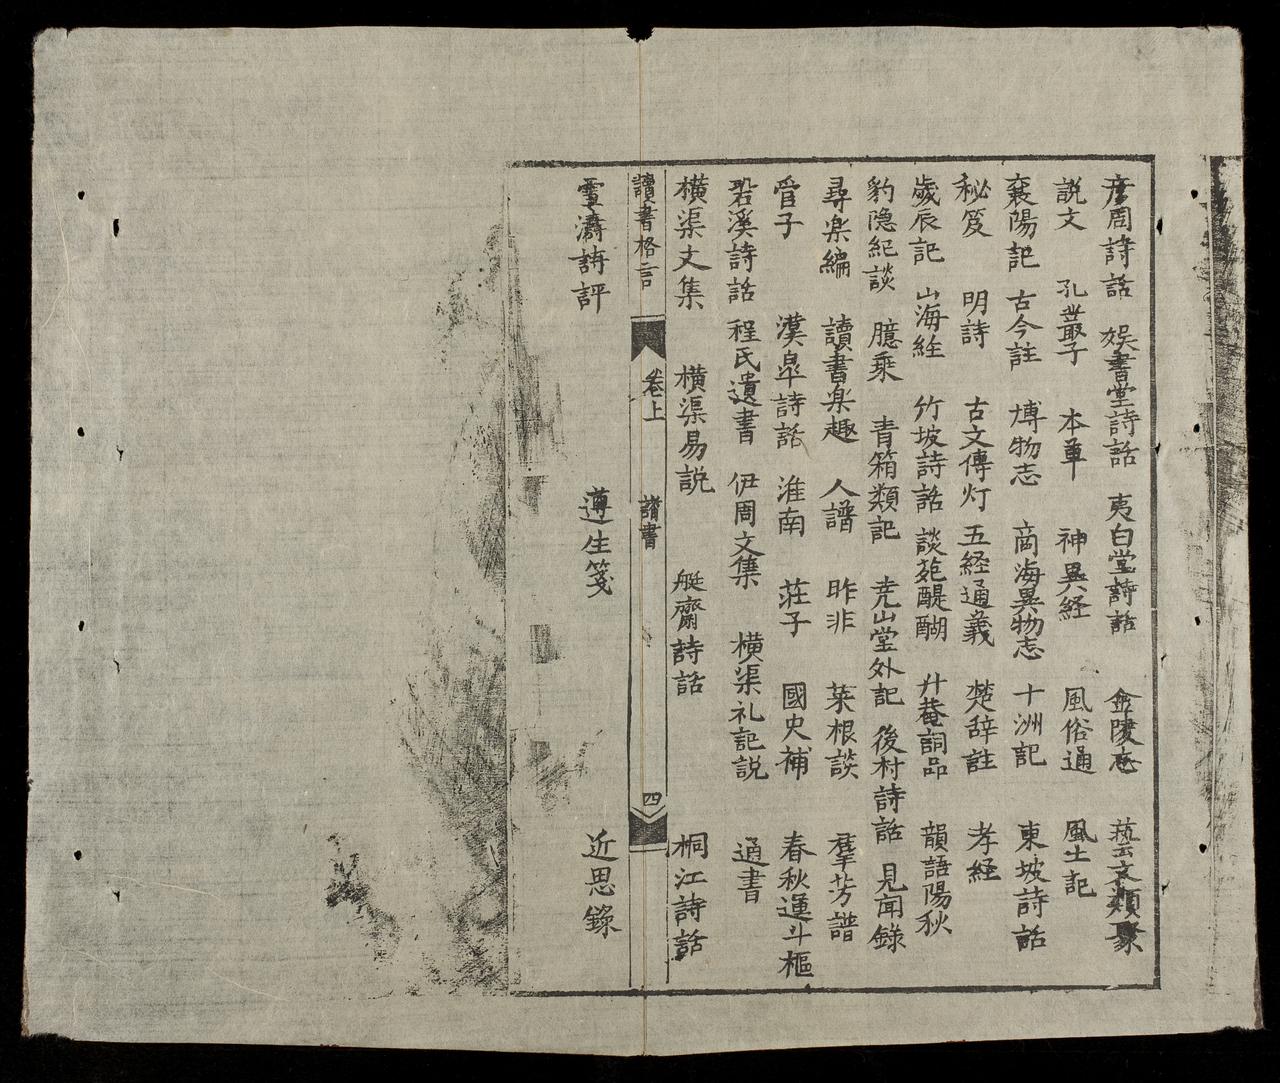 彦周詩話 娯書堂詩話 夷白堂詩話 金陵志 藝文類聚
説文 孔叢子 本草 神異経 風俗通 風土記
襄陽記 古今註 博物志 啇海異物志 十洲記 東坡詩話
秘笈 明詩 古文傳灯 五経通義 楚辞註 孝経
歲辰記 山海経 竹坡詩話 談苑醍醐 升菴詞品 韻語陽秋
豹隐紀談 臆乗 青箱類記 尭山堂外記 後村詩話 見聞録
尋楽編 讀書楽趣 人譜 昨非 菜根談 羣芳譜
管子 漢皐詩話 淮南 荘子 國史補 春秋運斗樞
䂬溪詩話 程氏遺書 伊周文集 横渠礼記説 通書
横渠文集 横渠易説 艇齋詩話 桐江詩話
讀書格言 卷上 讀書 四
雪濤詩評 遵生箋 近思錄